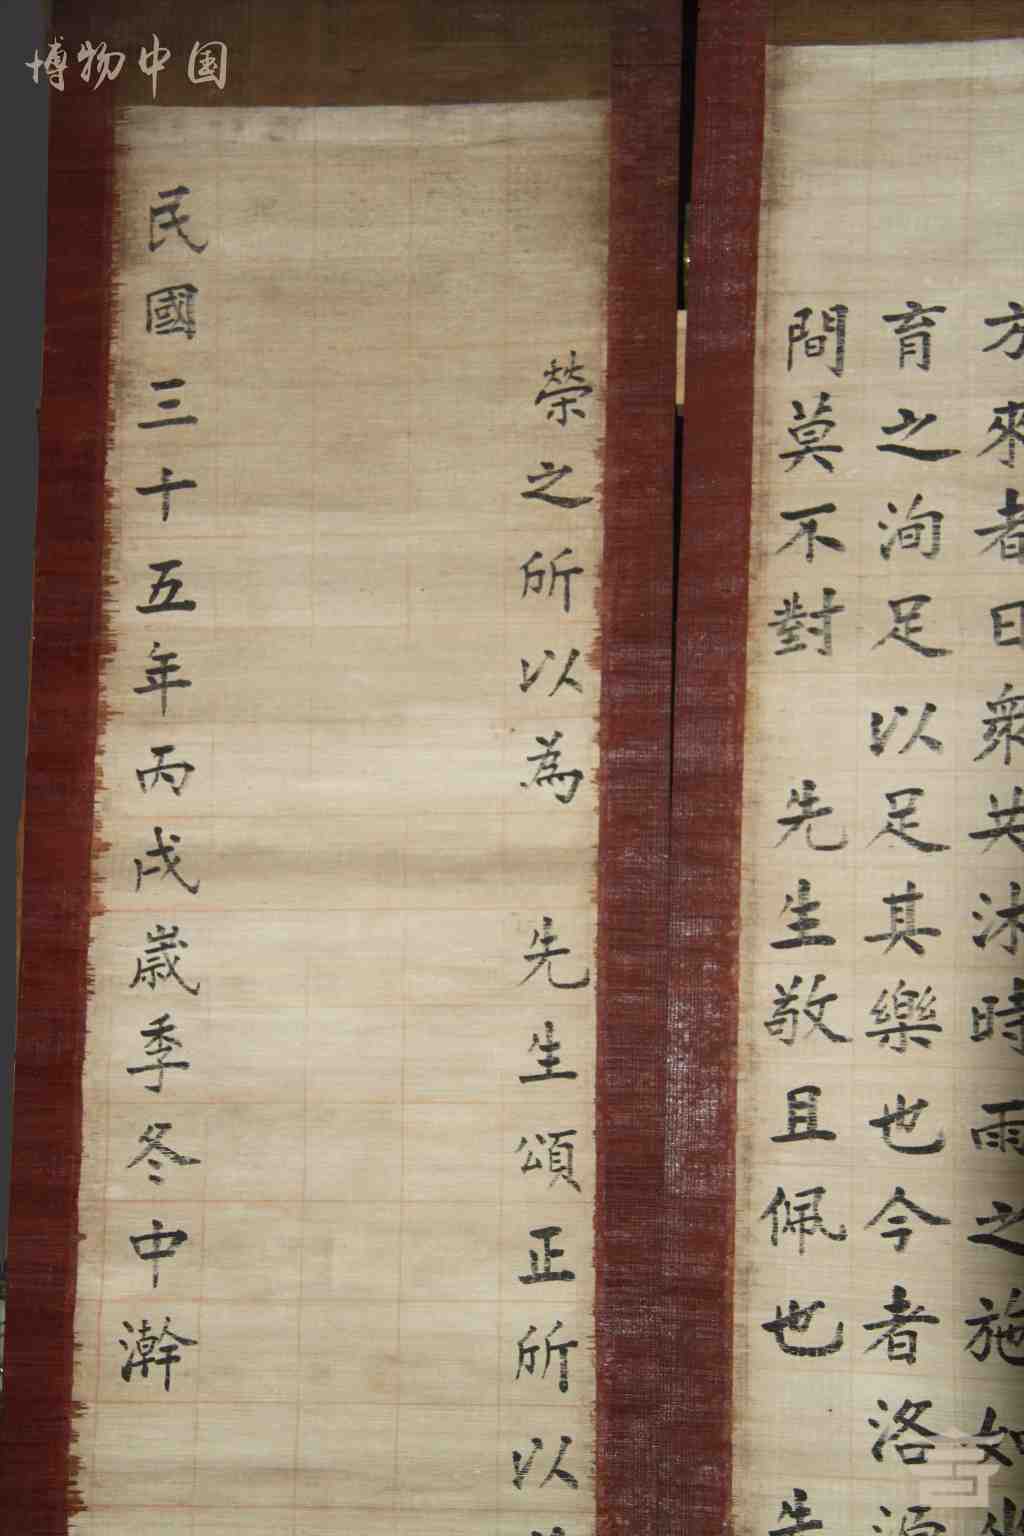 博物中国
方來者日衆共沐時雨之施如
育之洵足以足其樂也今者洛源
間莫不對 先生敬且佩也 先
榮之所以為 先生頌正所以
民國三十五年丙戌歲季冬中澣